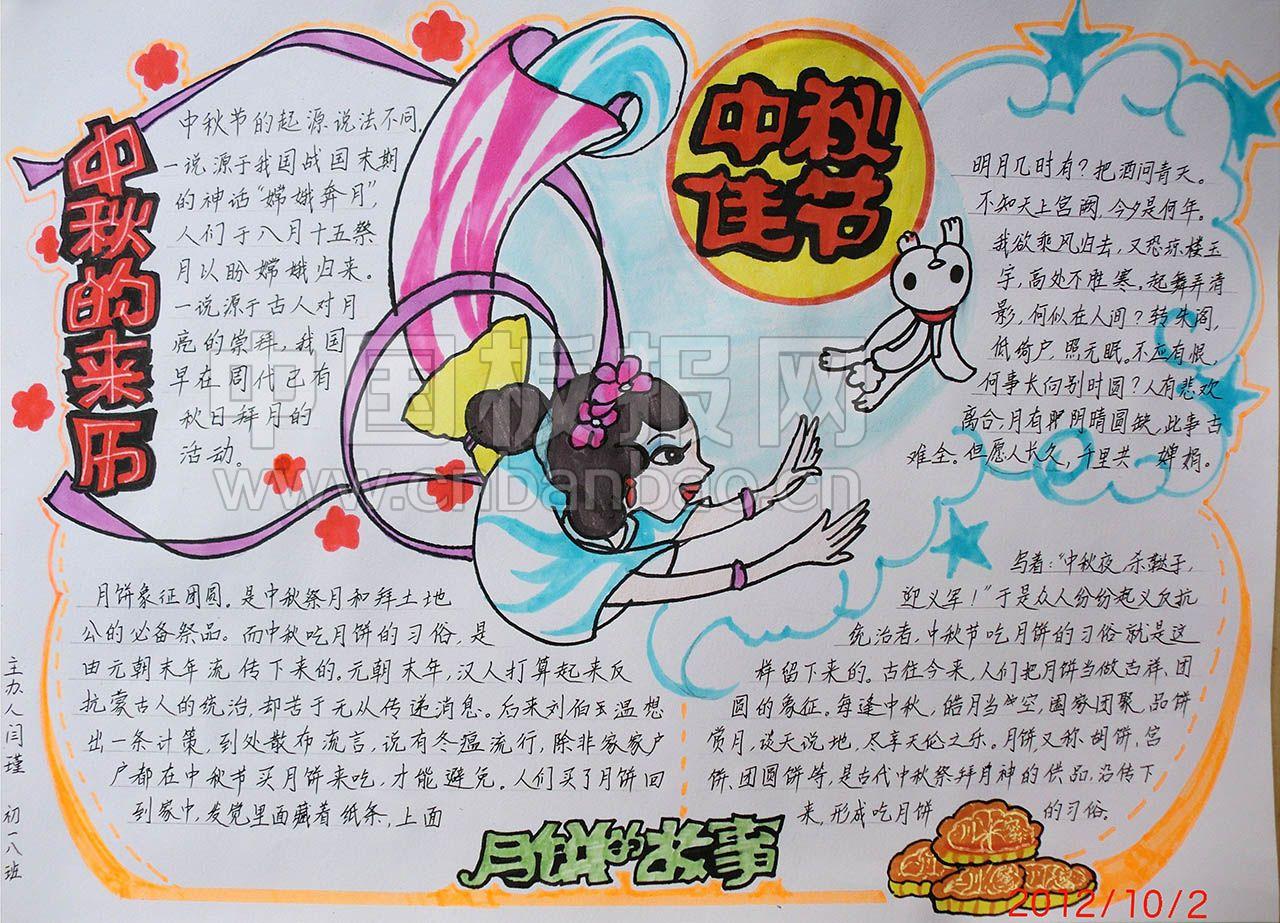 中秋佳节
中秋的来历
中秋节的起源说法不同,
一说源于我国战国末期
的神话“嫦娥奔月”,
人们于八月十五祭
月以盼嫦娥归来。
一说源于古人对月
亮的崇拜,我国
早在周代已有
秋日拜月的
活动。
明月几时有?把酒问青天。
不知天上宫阙,今夕是何年。
我欲乘风归去,又恐琼楼玉
宇,高处不胜寒。起舞弄清
影,何似在人间?转朱阁,
低绮户,照无眠。不应有恨,
何事长向别时圆?人有悲欢
离合,月有阴晴圆缺,此事古
难全。但愿人长久,千里共婵娟。
月饼象征团圆,是中秋祭月和拜土地
公的必备祭品。而中秋吃月饼的习俗,是
由元朝末年流传下来的。元朝末年,汉人打算起来反
抗蒙古人的统治,却苦于无从传递消息。后来刘伯玉温想
出一条计策,到处散布流言,说有冬瘟流行,除非家家户
户都在中秋节买月饼来吃,才能避免。人们买了月饼回
到家中,发觉里面藏着纸条,上面
写着:“中秋夜,杀鞑子,
迎义军!”于是众人纷纷起义反抗
统治者,中秋节吃月饼的习俗就是这
样留下来的。古往今来,人们把月饼当做吉祥、团
圆的象征。每逢中秋,皓月当空,阖家团聚,品饼
赏月,谈天说地,尽享天伦之乐。月饼又称胡饼、宫
饼、团圆饼等,是古代中秋祭拜月神的供品,沿传下
来,形成吃月饼的习俗。
月饼的故事
主办人闫瑾 初一八班
中国板报网
www.cnbanbao.cn
2012/10/2